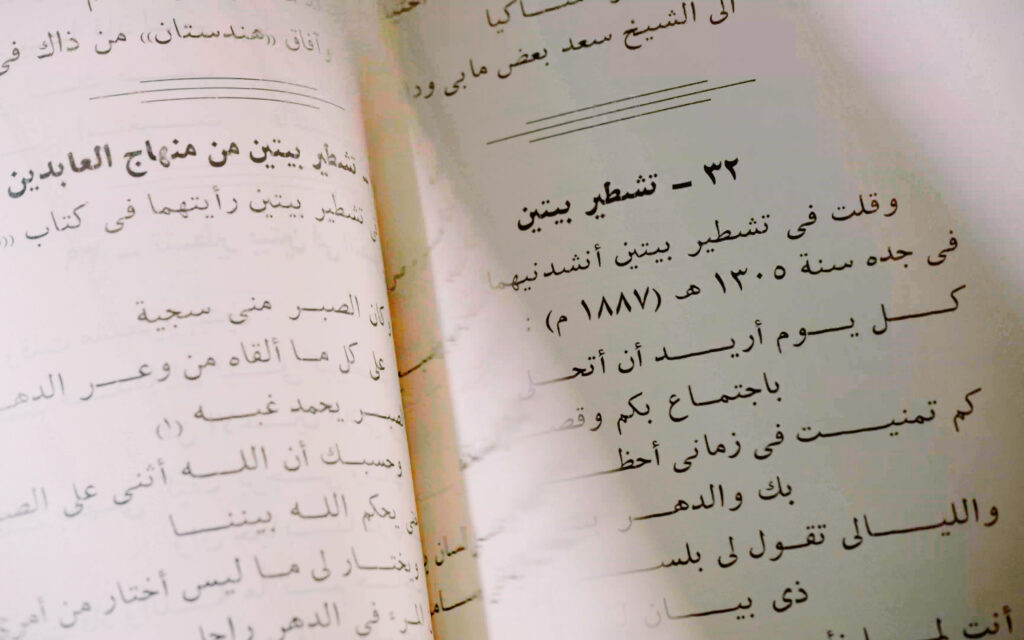 شاكيا
الى الشيخ سعد بعض مابى
٣٢ – تشطير بيتين
وقلت فى تشطير بيتين أنشدنيهما
فى جده سنة ١٣٠٥ هـ (١٨٨٧ م) :
كل يوم أريد أن أتحلـ
باجتماع بكم
كم تمنيت فى زمانى أحظـ
بك والدهر
والليالى تقول لى بلسـ
ذى بيان
أنت
وآفاق ((هندستان)) من ذاك فى
تشطير بيتين من منهاج العابدين
تشطير بيتين رأيتهما فى كتاب ((
كان الصبر منى سجية
على كل ما ألقاه من وعر الدهـ
يحمد غبه (١)
وحسبك أن الله أثنى على
يحكم الله بيننا
ويختار لى ما ليس أختار من أمرى
فى الدهر